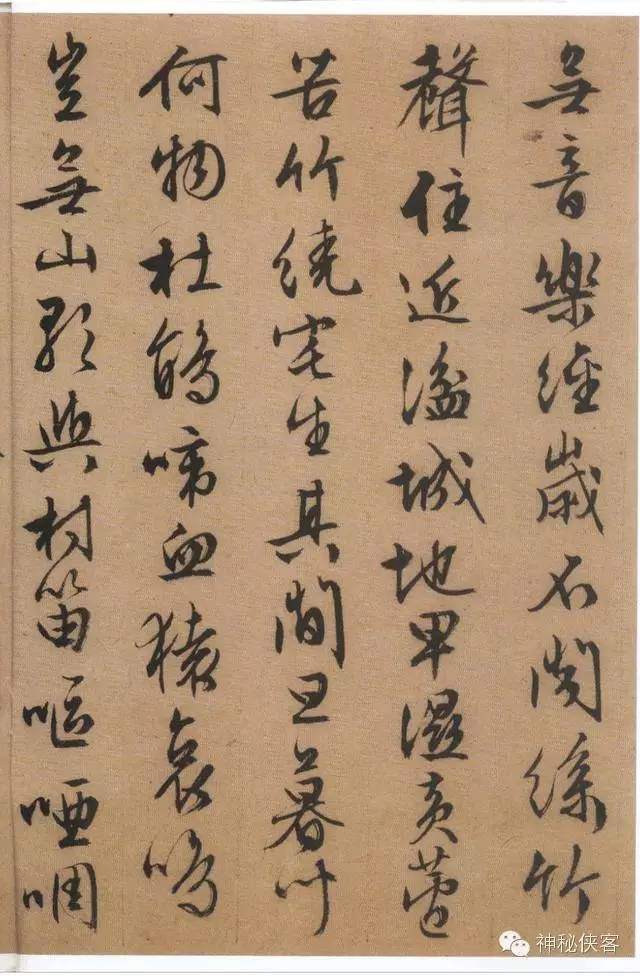 無音樂經歲不聞絲竹
聲住近湓城地卑濕黃蘆
苦竹繞宅生其間旦暮聞
何物杜鵑啼血猿哀鳴
豈無山歌與村笛嘔啞啁
神秘侠客